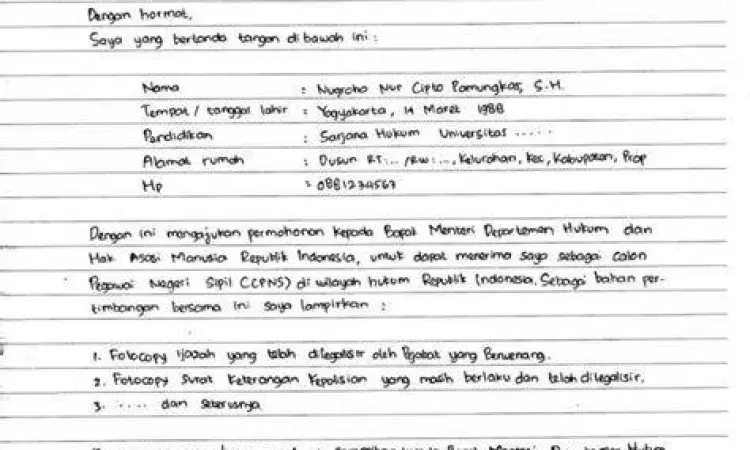 Dengan hormat,
Saya yang bertanda tangan di bawah ini :
Nama : Nugroho Nur Cipto Pamungkas, S.H.
Tempat / tanggal lahir : Yogyakarta, 14 Maret 1988
Pendidikan : Sarjana Hukum Universitas .....
Alamat rumah : Dusun RT:... /RW:..., Kelurahan, Kec, Kabupaten, Prop
Hp : 0881234567
Dengan ini mengajukan permohonan kepada Bapak Menteri Departemen Hukum dan
Hak Asasi Manusia Republik Indonesia, untuk dapat menerima saya sebagai calon
Pegawai Negeri Sipil (CPNS) di wilayah hukum Republik Indonesia. Sebagai bahan per-
timbangan bersama ini saya lampirkan :
1. Fotocopy ijazah yang telah dilegalisir oleh Pejabat yang Berwenang.
2. Fotocopy Surat Keterangan Kepolisian yang masih berlaku dan telah dilegalisir.
3. .... dan seterusnya